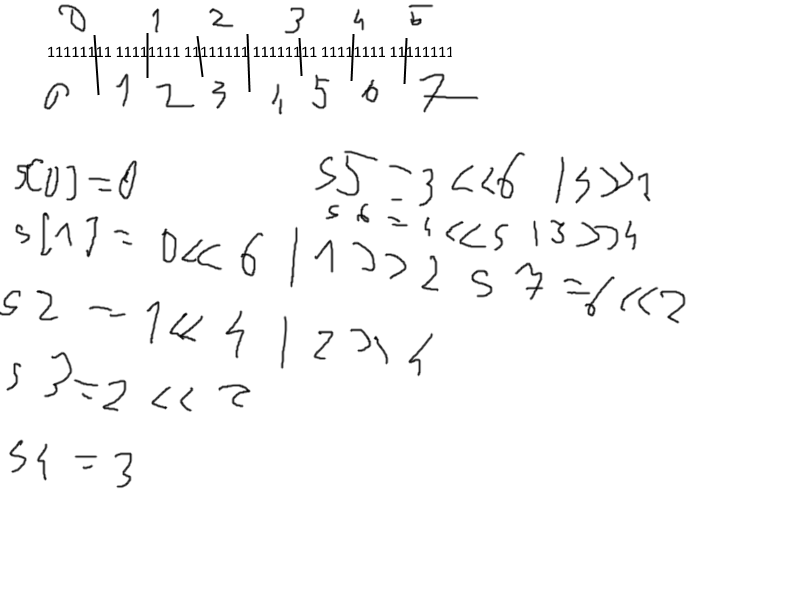 0 1 2 3 4 5
11111111 11111111 11111111 11111111 11111111 11111111
0 1 2 3 4 5 6 7
s[0] = 0
s[1] = 0 << 6 | 1 >> 2
s2 = 1 << 4 | 2 >> 4
s3 = 2 << 2
s4 = 3
s5 = 3 << 6 | 4 >> 2
s6 = 4 << 5 | 3 >> 4
s7 = 6 << 2